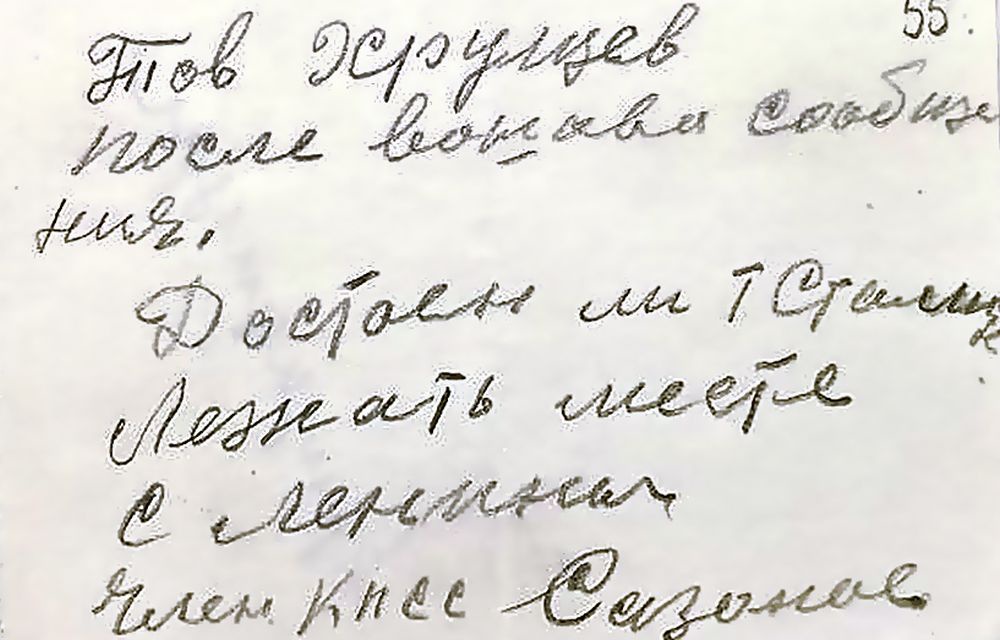 55.
Тов Хрущев
после вашава сообще
ния.
Достоен ли т Сталин
Лежать месте
с Лениним
член КПСС Сазонов